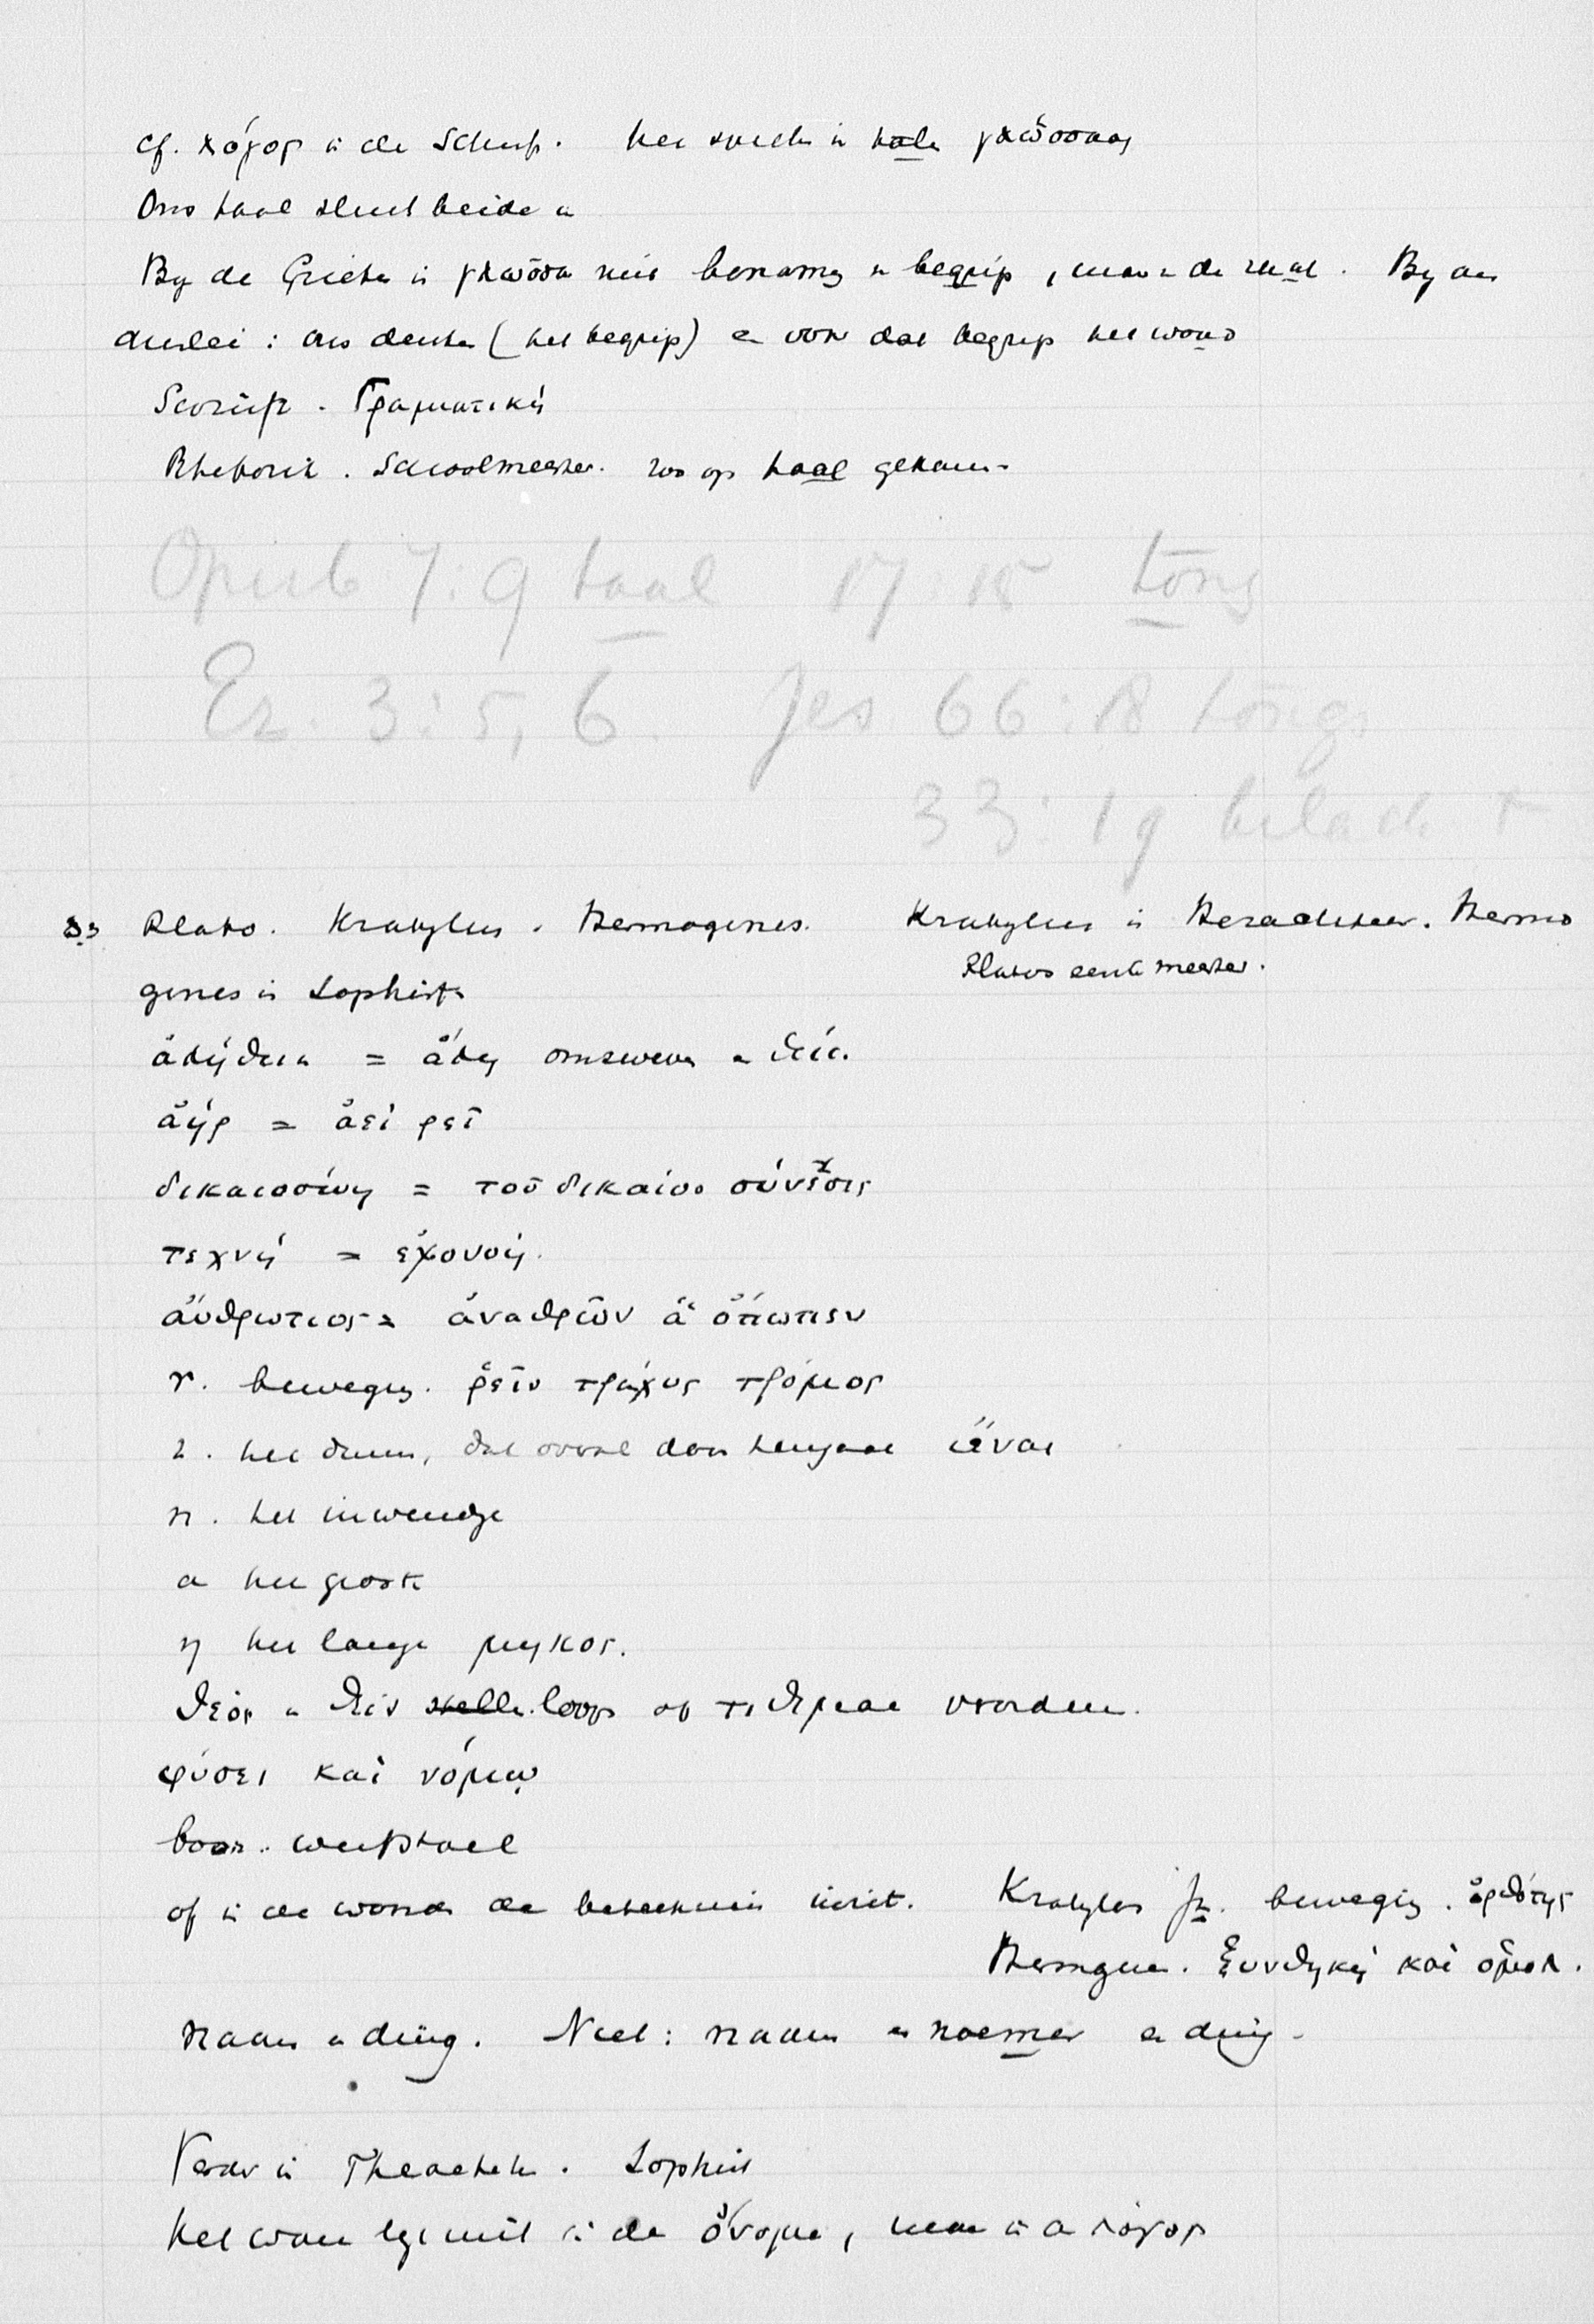 cf. λόγος in de Schrift. Het spreken in vele γλῶσσαις
Ons taal sluit beide in
By de Grieken is γλῶσσα niet benaming en begrip, maar de zaak. By ons
duslei: ons denken (het begrip) en voor dat begrip het woord
Γραμματική
Rhetoriek. Schoolmeester. zoo op taal gekomen
Openb 7:9 taal 17:15 tong
Ez. 3:5, 6. Jes 66:18 tong
33:19 belach
§3 Plato. Kratylus. Hermogenes. Kratylus is Heracliteer. Hermo
Platos eerste meester.
genes is Sophist
ἀλήθεια = ἄλη omzweven en θεία
ἀήρ = ἀεὶ ῥεῖ
δικαιοσύνη = τοῦ δικαίου σύνεσις
τεχνή = ἐχονοή.
ἄνθρωπος = ἀναθρῶν ἃ ὄπωπεν
r. beweging. ῥεῖν τραχύς τρόμος
i. het dunne, dat overal door heengaat ἰέναι
n. het inwendige
a het groote
η het lange μηκος.
θεός en θεῖν snelle loop of τίθημαι worden.
φύσει καὶ νόμῳ
boor. weefstoel
of in de woorden de beteekenis inzit. Kratylos φ. beweging. ὀρθότης
Hermogen. ξυνθήκη καὶ ὁμολ.
naam en ding. Niet: naam en noemer en ding.
Verder in Theaetetus. Sophist
Het ware ligt niet in de ὄνομα, maar in de λόγος